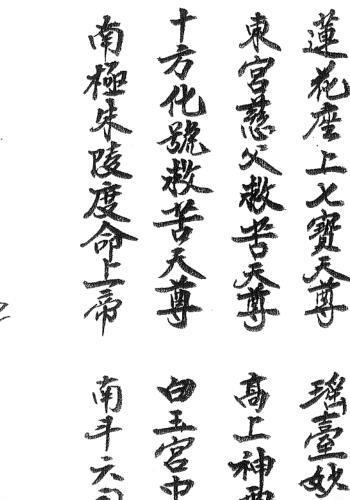 蓮花座上七寶天尊
東宮慈父救苦天尊
十方化號救苦天尊
南極朱陵度命上帝
瑶臺妙
高上神
白玉宮中
南斗六司